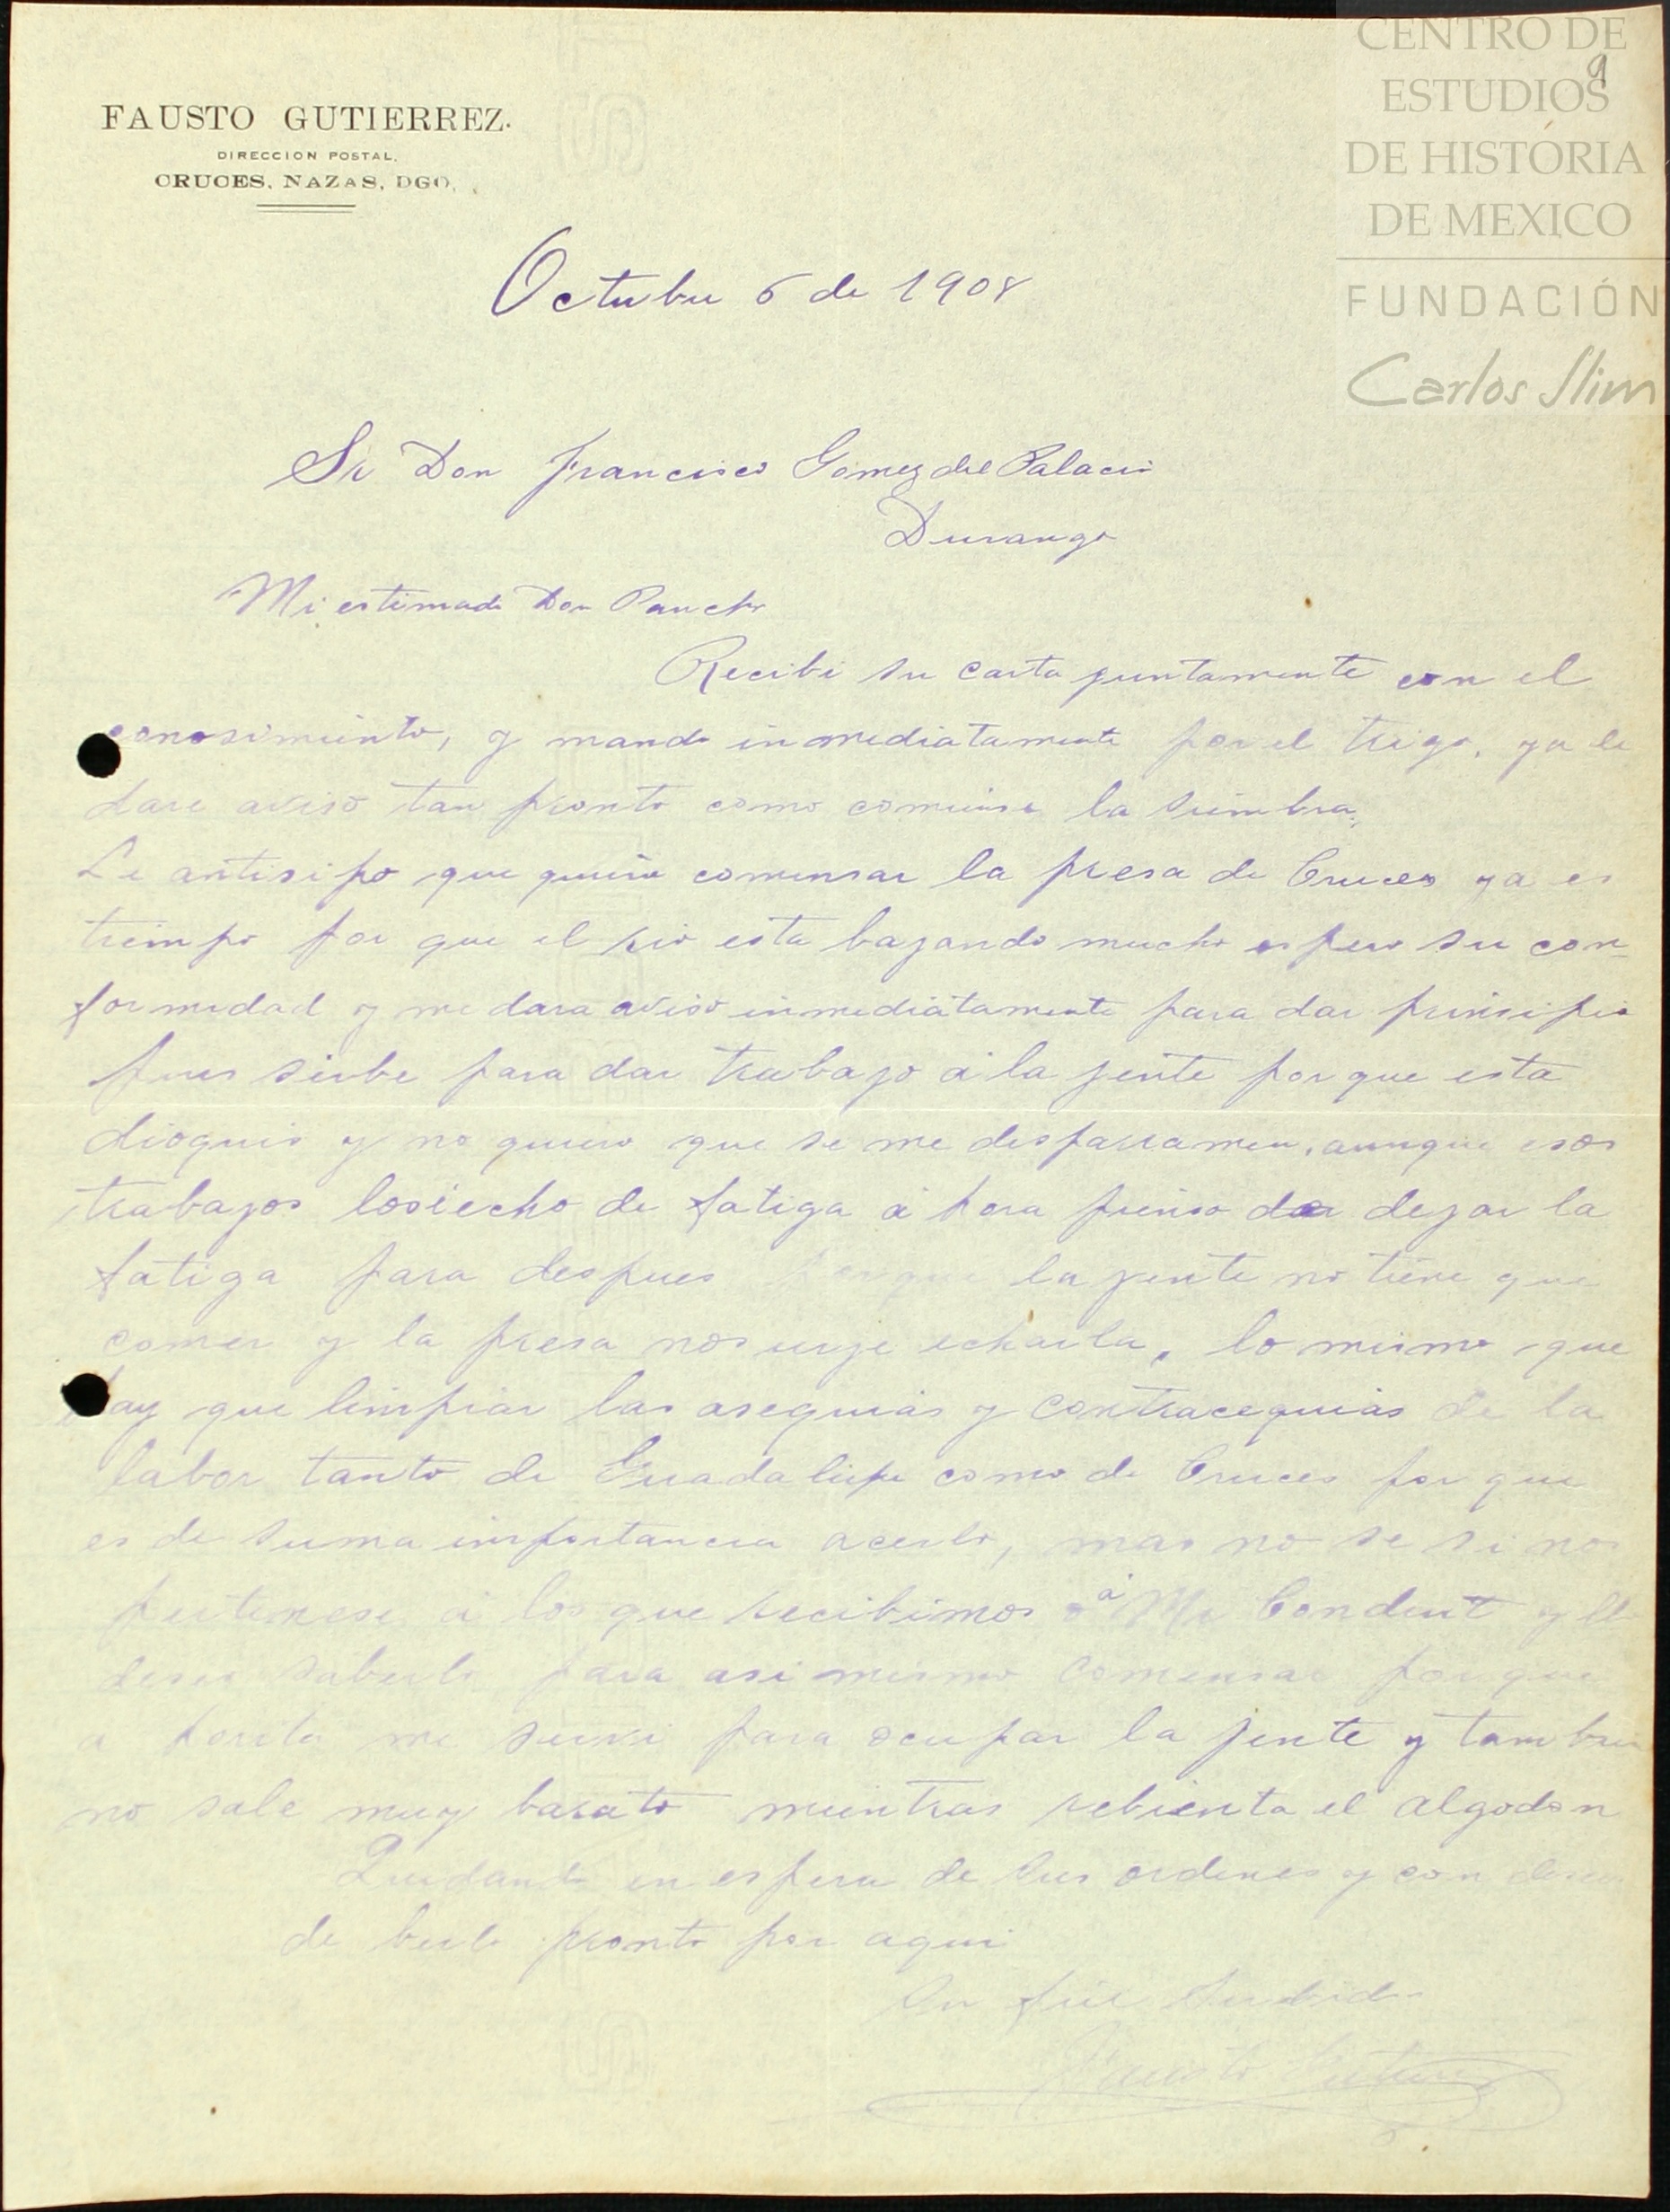 CENTRO DE
ESTUDIOS
DE HISTORIA
DE MEXICO
FUNDACIÓN
Carlos Slim
9
FAUSTO GUTIERREZ.
DIRECCION POSTAL.
CRUCES, NAZAS, DGO.
Octubre 6 de 1908
Sr Don Francisco Gómez del Palacio
Durango
Mi estimado Don Pancho
Recibi su carta juntamente con el
conosimiento, y mando inmediatamente por el trigo, ya le
dare aviso tan pronto como comiense la siembra.
Le antisipo que quiero comensar la presa de Cruces ya es
tiempo por que el rio esta bajando mucho espero su con-
formidad y me dara aviso inmediatamente para dar prinsipio
pues sirbe para dar trabajo á la jente por que esta
dioquis y no quiero que se me desparramen, aunque esos
trabajos losiecho de fatiga á hora pienso dejar la
fatiga para despues porque la jente no tiene que
comer y la presa nos urje echarla, lo mismo que
hay que limpiar las asequias y contracequias de la
labor tanto de Guadalupe como de Cruces por que
es de suma importancia acerlo, mas no se si nos
pertenese á los que recibimos o á Mr y
deseo saberlo para asi mismo comensar porque
a horita me sirve para ocupar la jente y tambien
no sale muy barato mientras rebienta el algodon
Quedando en espera de sus ordenes y con deseos
de berlo pronto por aqui
Su
Fausto Gutierrez